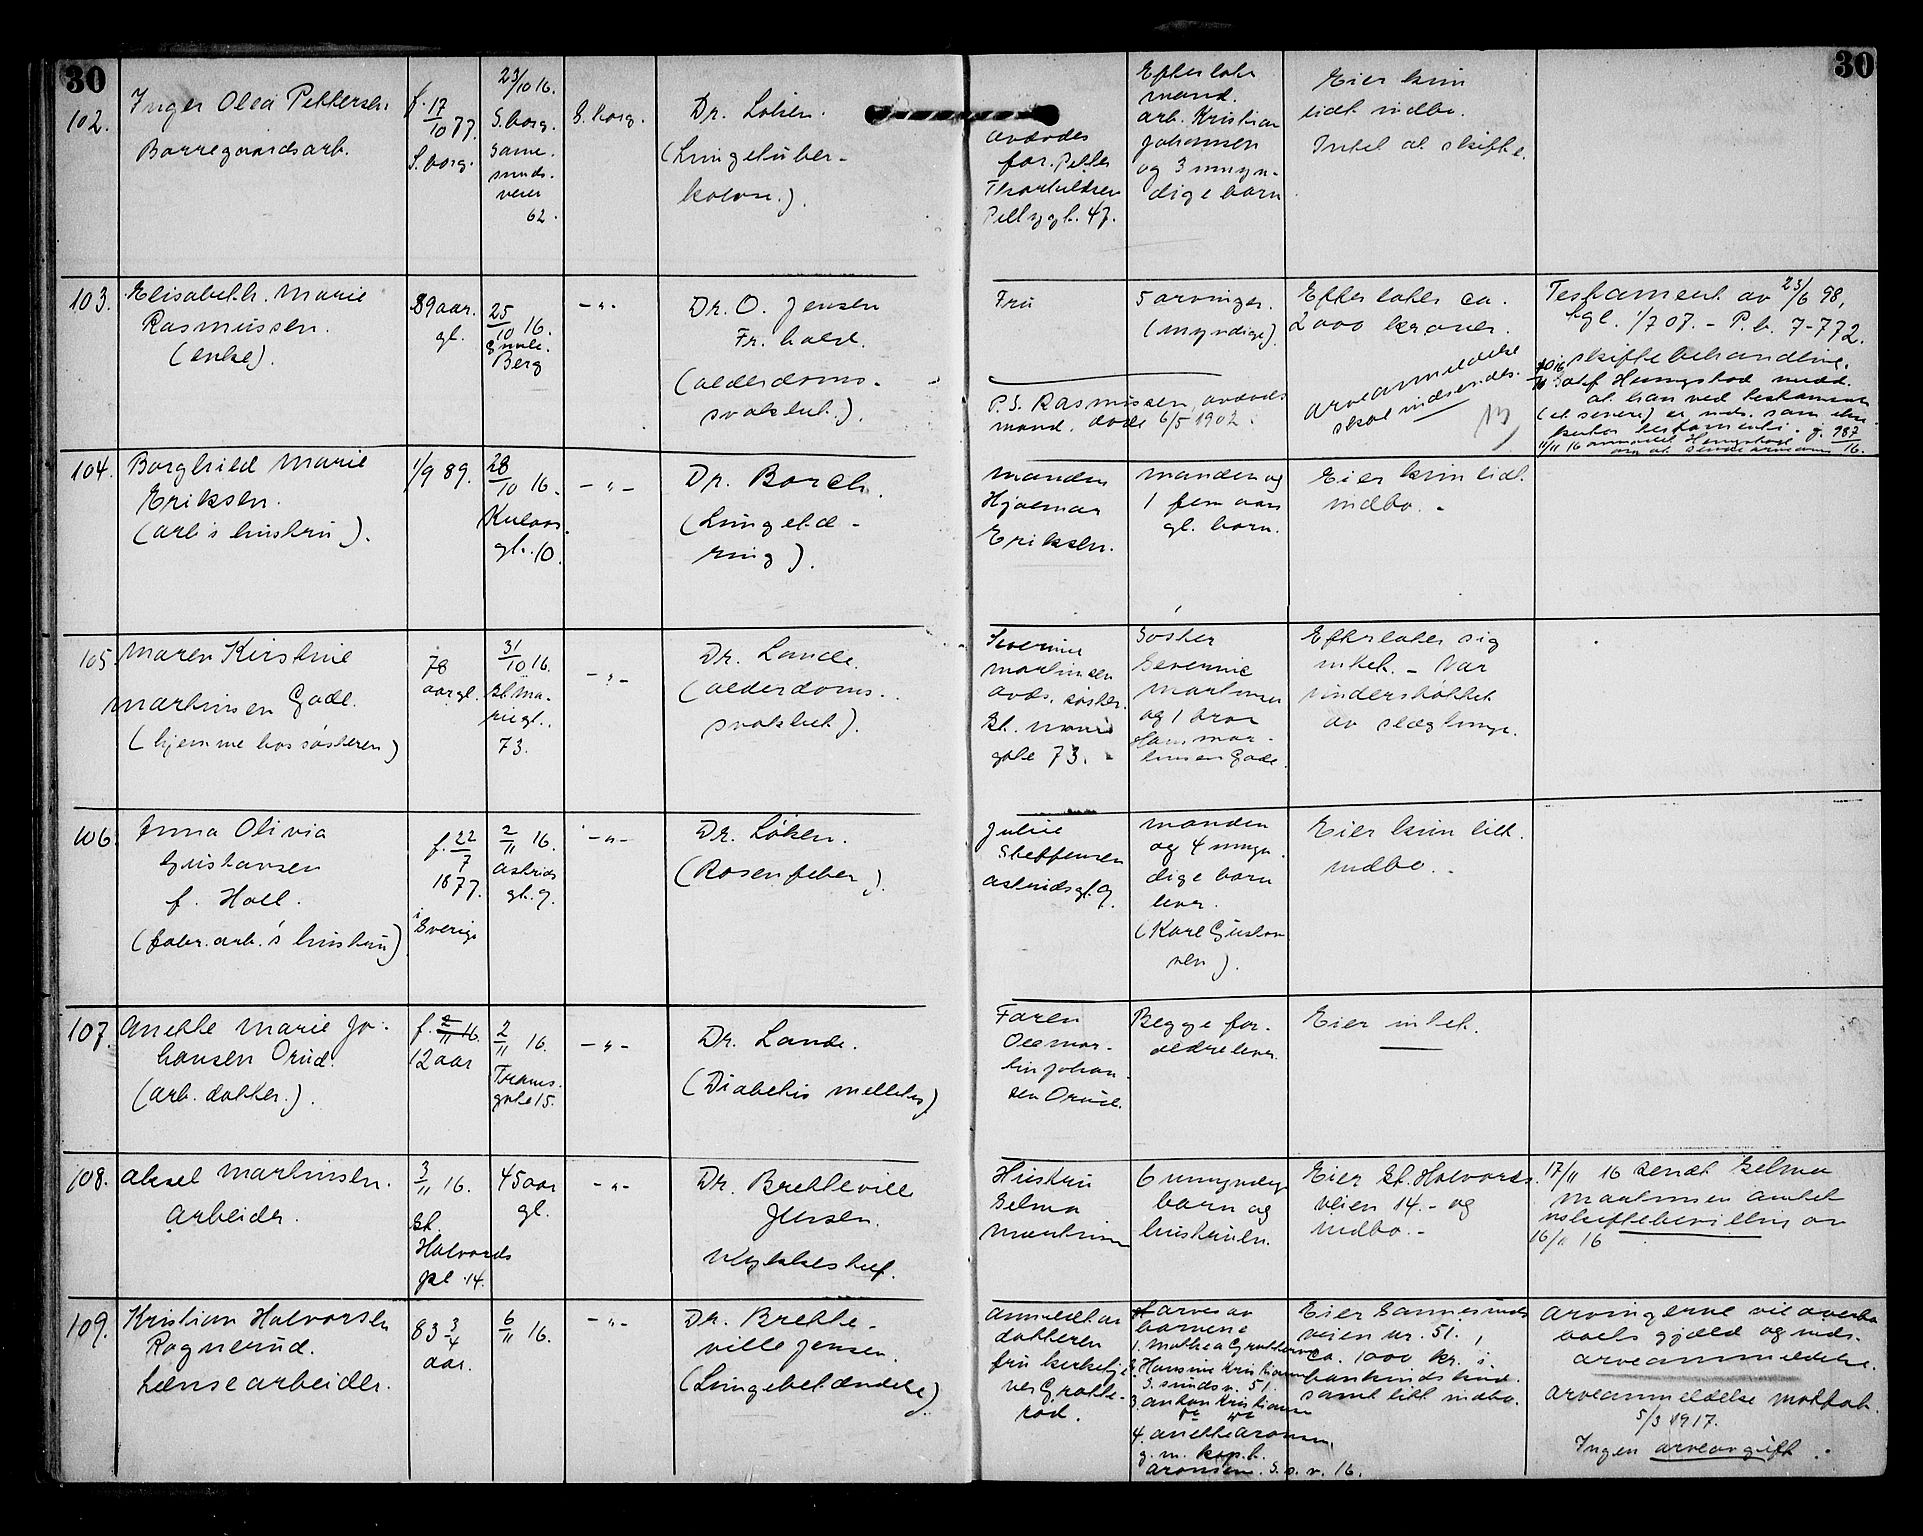 30
30
102.
Inger Olea Pettersen
Borregaardsarb.
f. 17/10 77.
S.borg.
23/10 16.
S.borg.
Sanne-
sunds-
veien
62.
S.borg.
Dr. Løken.
(Lungetuber-
kolose.)
avdødes
far. Petter
Thorkildsen
Pellygt. 47.
Efterlater
mand.
arb. Kristian
Johansen
og 3 umyn-
dige barn
Eier kun
lidt indbo.
Intet at skifte.
103.
Elisabeth Marie
Rasmussen.
(enke).
89 aar
gl.
25/10 16.
Gamle-
Berg
-"-
Dr. O. Jensen
Fr. hald.
(alderdoms-
svakhet.).
Fru
5 arvinger.
(myndige)
Efterlater ca.
2000 kroner.
Testament av 23/6 98,
tgl. 1/7 07. - P.b. 7-772.
P. S. Rasmussen, avdødes
mand, døde 6/5 1902.
arveanmeldelse
skal indsendes.
skiftebehandling.
104.
Borghild Marie
Eriksen.
(arb's hustru).
1/9 89.
28/10 16.
Kulaas
gt. 10.
-"-
Dr. Borch.
(Lungetæ-
ring).
Manden
Hjalmar
Eriksen.
Manden og
1 fem aars
gl. barn.
Eier kun lidt
indbo. -
105
Maren Kirstine
Martinsen Gade.
(hjemme hos søsteren)
78
aar gl.
31/10 16.
St. Ma-
rie gt.
73.
-"-
Dr. Lande.
(alderdoms-
svakhet).
Severine
Martinsen
avds. søster.
St. Marie
gate 73. -
Søster
Severine
Martinsen
og 1 bror
Hans Mar-
tinsen Gade.
Efterlater sig
intet. - Var
understøttet
av slegtninge.
106.
Anna Olivia
Gustavsen
f. Holl.
(fabr. arb.'s hustru)
f. 22/7
1877.
i Sverige
2/11 16.
Astrids
gt. 9.
-"-
Dr. Løken.
(Rosenfeber).
Julie
Steffensen
Astridsgt. 9.
Manden
og 4 umyn-
dige barn
lever.
(Karl Gustav-
sen).
Eier kun litt
indbo. -
107.
Anette Marie Jo-
hansen Orud.
(arb. datter.).
f. 2/11 16.
12 aar
2/11 16.
Trams-
gate 15.
-"-
Dr. Lande.
(Diabetis mellitus)
Faren
Ole Mar-
tin Johan-
sen Orud.
Begge for-
ældre lever.
Eier intet.
108.
Aksel Martinsen.
Arbeider.
3/11 16.
St.
Halvards
pl. 14.
45 aar
gl.
-"-
Dr. Bretteville
Jensen.
Hustru
Selma
Martinsen
6 umyndige
barn og
hustruen.
Eier St. Halvards
veien 14. - og
indbo. -
17/11 16 sendt Selma
Martinsen attest
uskiftebevilling av
16/11 16
109.
Kristian Halvorsen
Rognerud.
Lensearbeider.
83 3/4
aar.
6/11 16.
-"-
Dr. Brette-
ville Jensen.
(Lungebetændelse)
anmeldt av
datteren
fru
Grøtte-
rød.
arves av
barnene
1. Mathea Grøtterød
2. Hansine Kristiansen
S. sunds v. 51.
3. Anton Kristiansen
4. Anette Aronsen,
g. m.
Aronsen. S. s. v. 16.
Eier Sannesunds
veien nr. 51.,
ca. 1000 kr. i
bankindskud.
samt litt indbo.
Arvingerne vil overta
boets gjæld og inds.
arveanmeldelse.
Arveanmeldelse mottat
5/3 1917.
Ingen arveavgift.